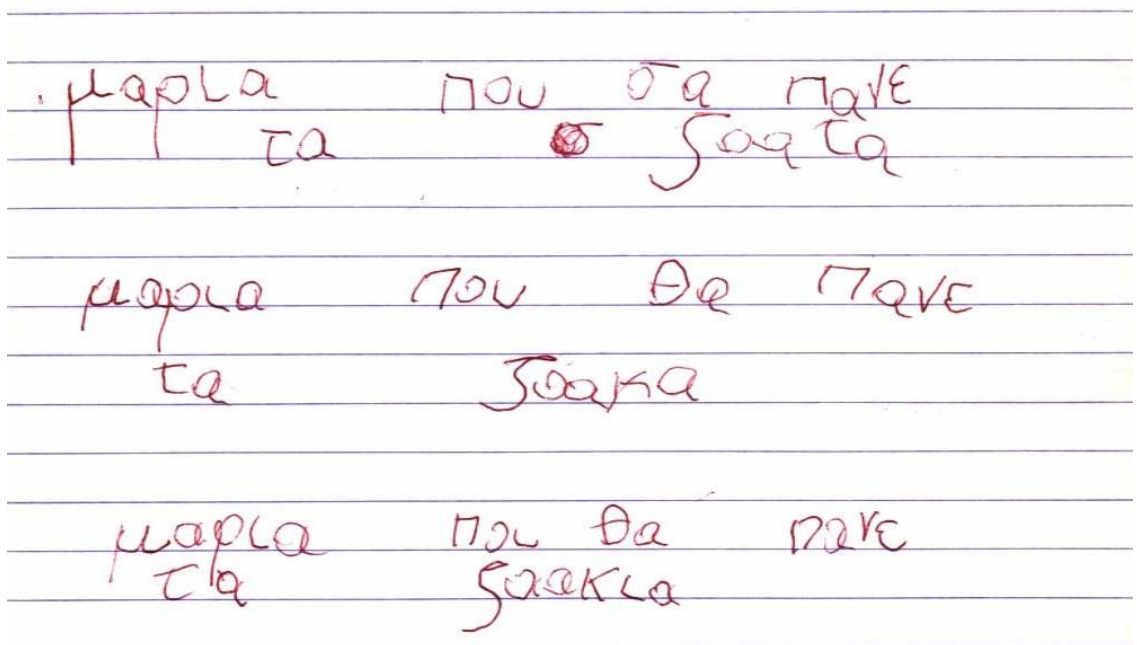 μαρια που σα πανε
τα ζοατα
μαρια που θα πανε
τα ζοακα
μαρια που θα πανε
τα ζαακια